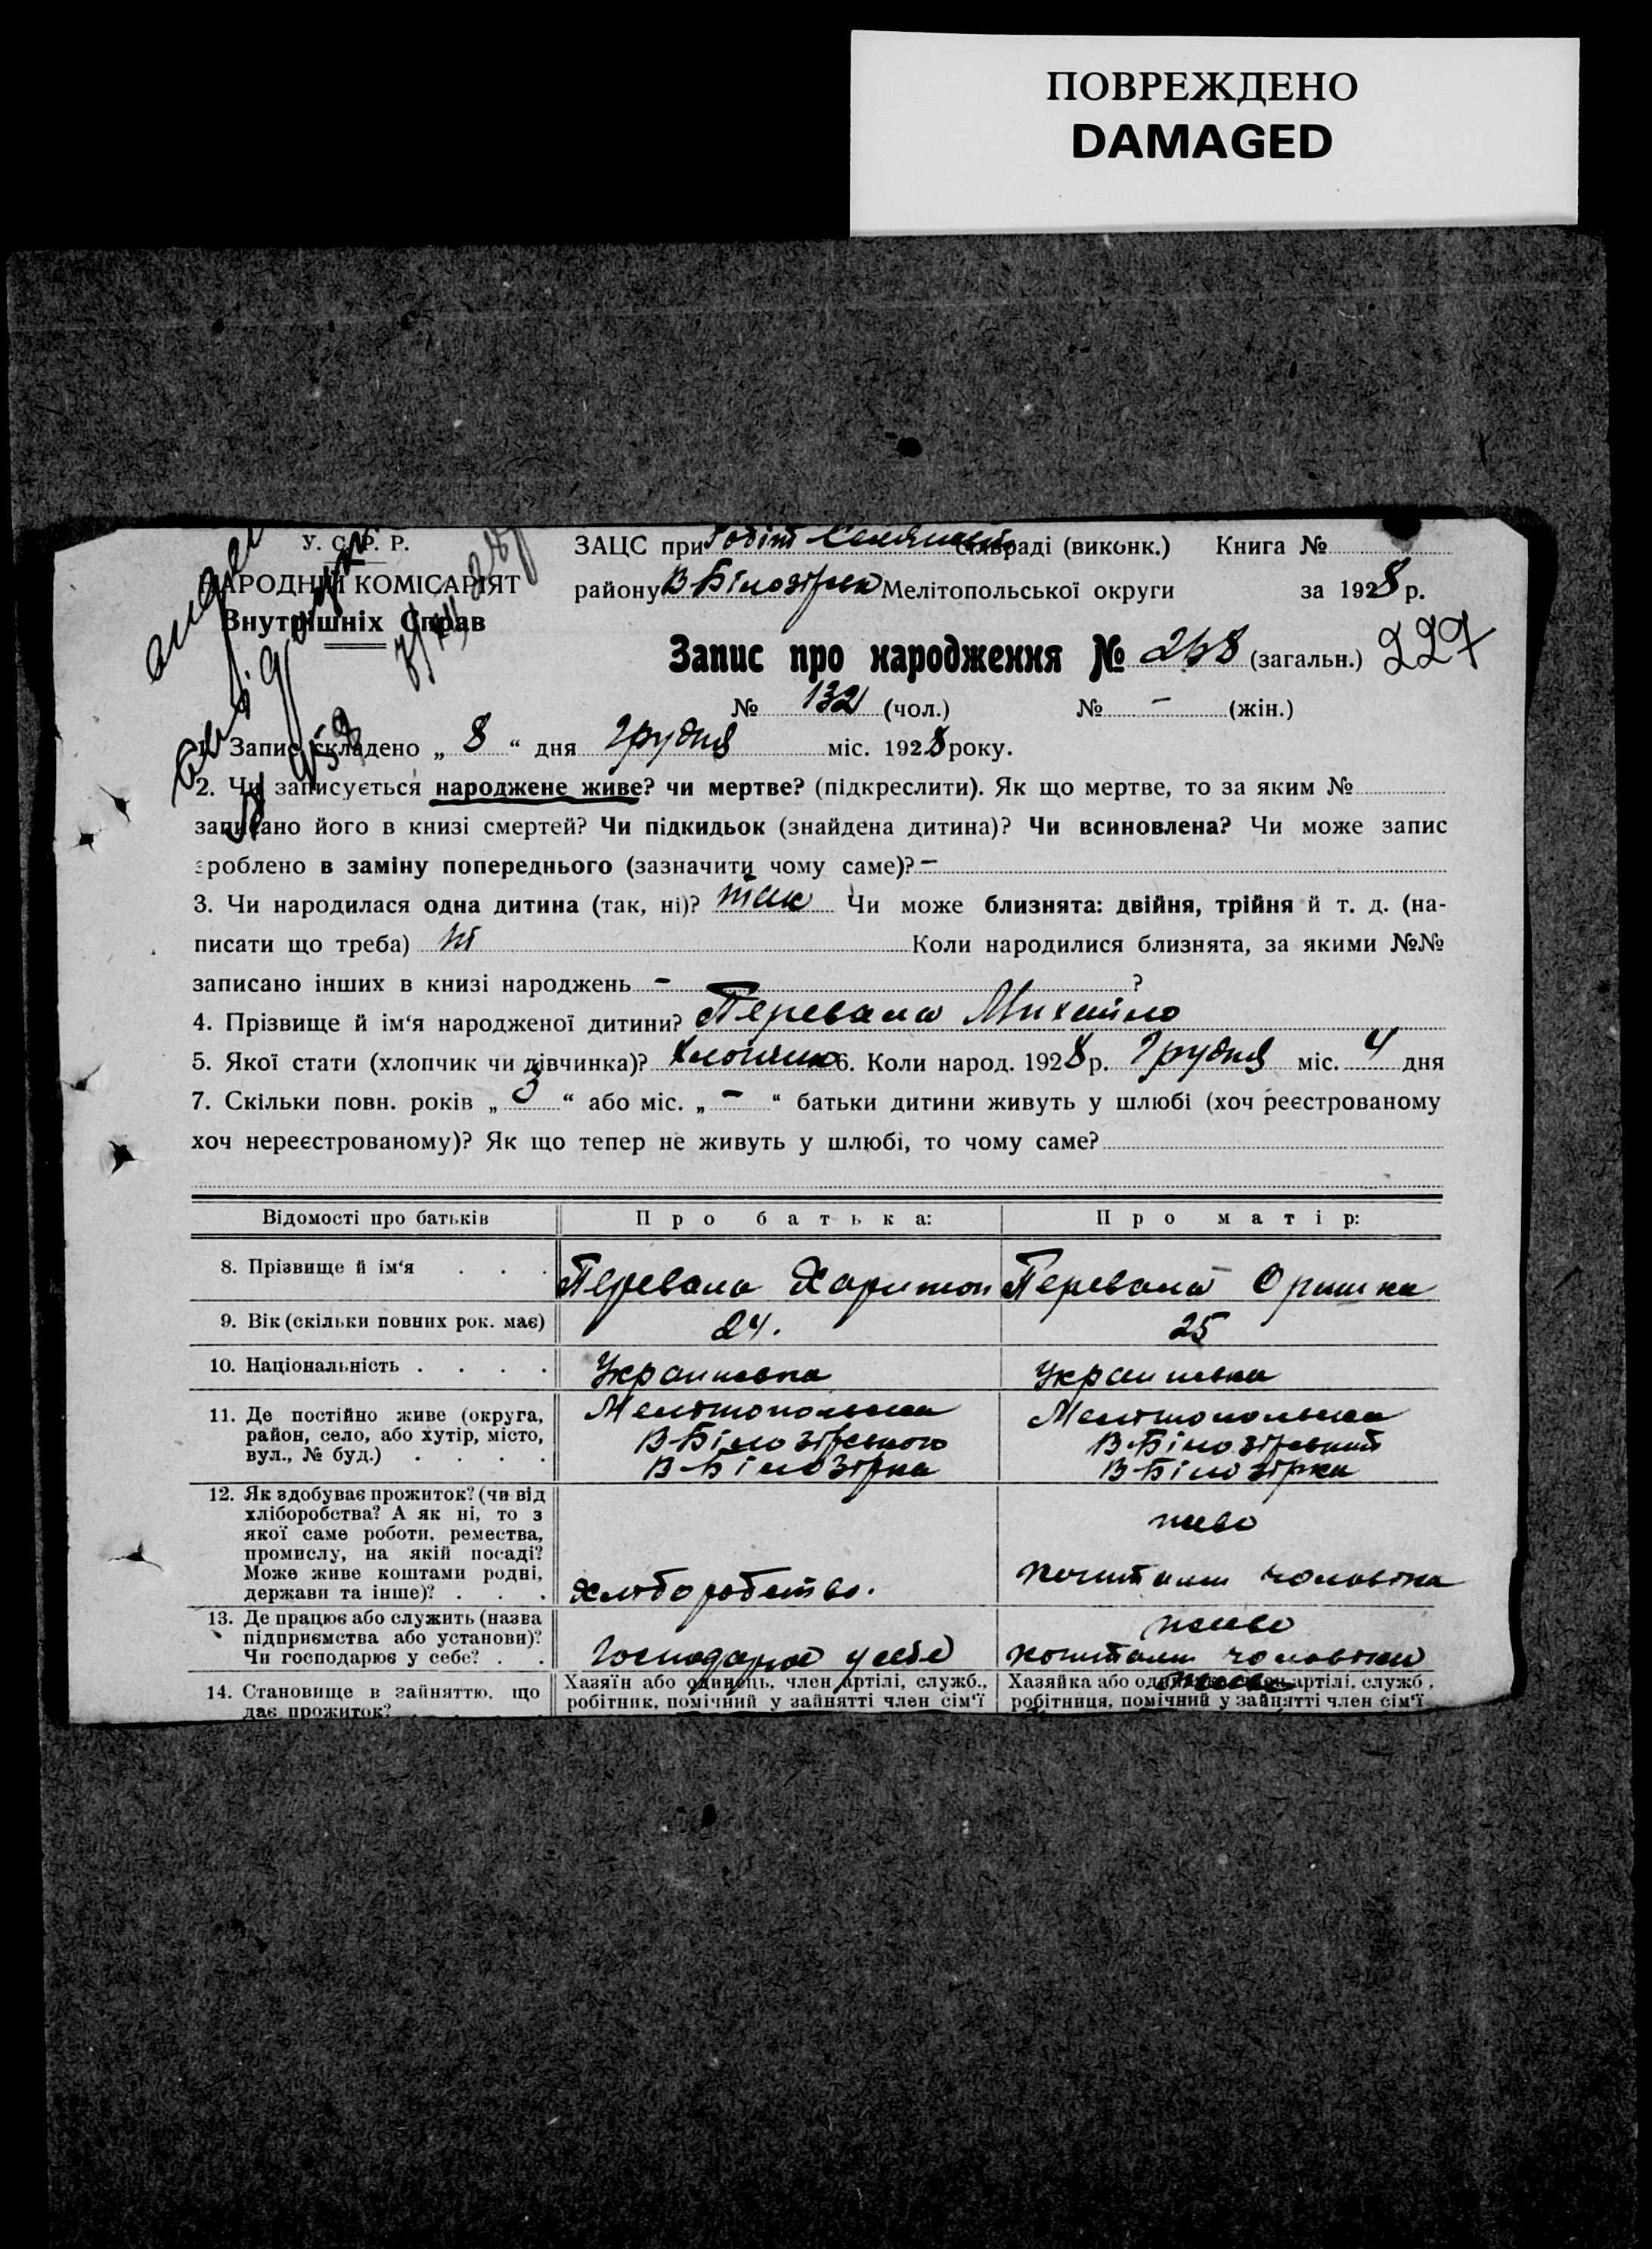 ПОВРЕЖДЕНО
DAMAGED
У. С. Р. Р.
НАРОДНІЙ КОМІСАРІЯТ
Внутрішніх Справ
ЗАЦС при Робіт Селянськ сільраді (виконк.) Книга №
району В-Білозірськ Мелітопольської округи за 1928 р.
Запис про народження № 268 (загальн.) 227
№ 132 (чол.) № - (жін.)
1. Запис складено „ 8 “ дня Грудня міс. 1928 року.
2. Чи записується народжене живе? чи мертве? (підкреслити). Як що мертве, то за яким №
записано його в книзі смертей? Чи підкидьок (знайдена дитина)? Чи всиновлена? Чи може запис
зроблено в заміну попереднього (зазначити чому саме)? -
3. Чи народилася одна дитина (так, ні)? так Чи може близнята: двійня, трійня й т. д. (на-
писати що треба) ні Коли народилися близнята, за якими №№
записано інших в книзі народжень - ?
4. Прізвище й ім'я народженої дитини? Перевала Михайло
5. Якої статі (хлопчик чи дівчинка)? Хлопчик 6. Коли народ. 1928 р. Грудня міс. 4 дня
7. Скільки повн. років „ 3 “ або міс. „ - “ батьки дитини живуть у шлюбі (хоч реєстрованому
хоч нереєстрованому)? Як що тепер не живуть у шлюбі, то чому саме?
Відомості про батьків Про батька: Про матір:
8. Прізвище й ім'я . . . Перевала Харитон Перевала Оришка
9. Вік (скільки повних рок. має) 24. 25
10. Національність . . . . Украинська Украинська
11. Де постійно живе (округа,
район, село, або хутір, місто,
вул., № буд.) . . . .
Мелітопольска
В-Білозірського
В-Білозірка
Мелітопольска
В-Білозірський
В-Білозірка
12. Як здобуває прожиток? (чи від
хліборобства? А як ні, то з
якої саме роботи, ремества,
промислу, на якій посаді?
Може живе коштами родні,
держави та інше)? . . .
Хліборобство.
живе
коштами чоловіка
13. Де працює або служить (назва
підприємства або установи)?
Чи господарює у себе? . .
Господарює у себе
живе
коштами чоловіка
14. Становище в зайняттю, що
дає прожиток?
Хазяїн або одинець, член артілі, служб.,
робітник, помічний у зайнятті член сім'ї
Хазяйка або артілі, служб.,
робітниця, помічний у зайнятті член сім'ї